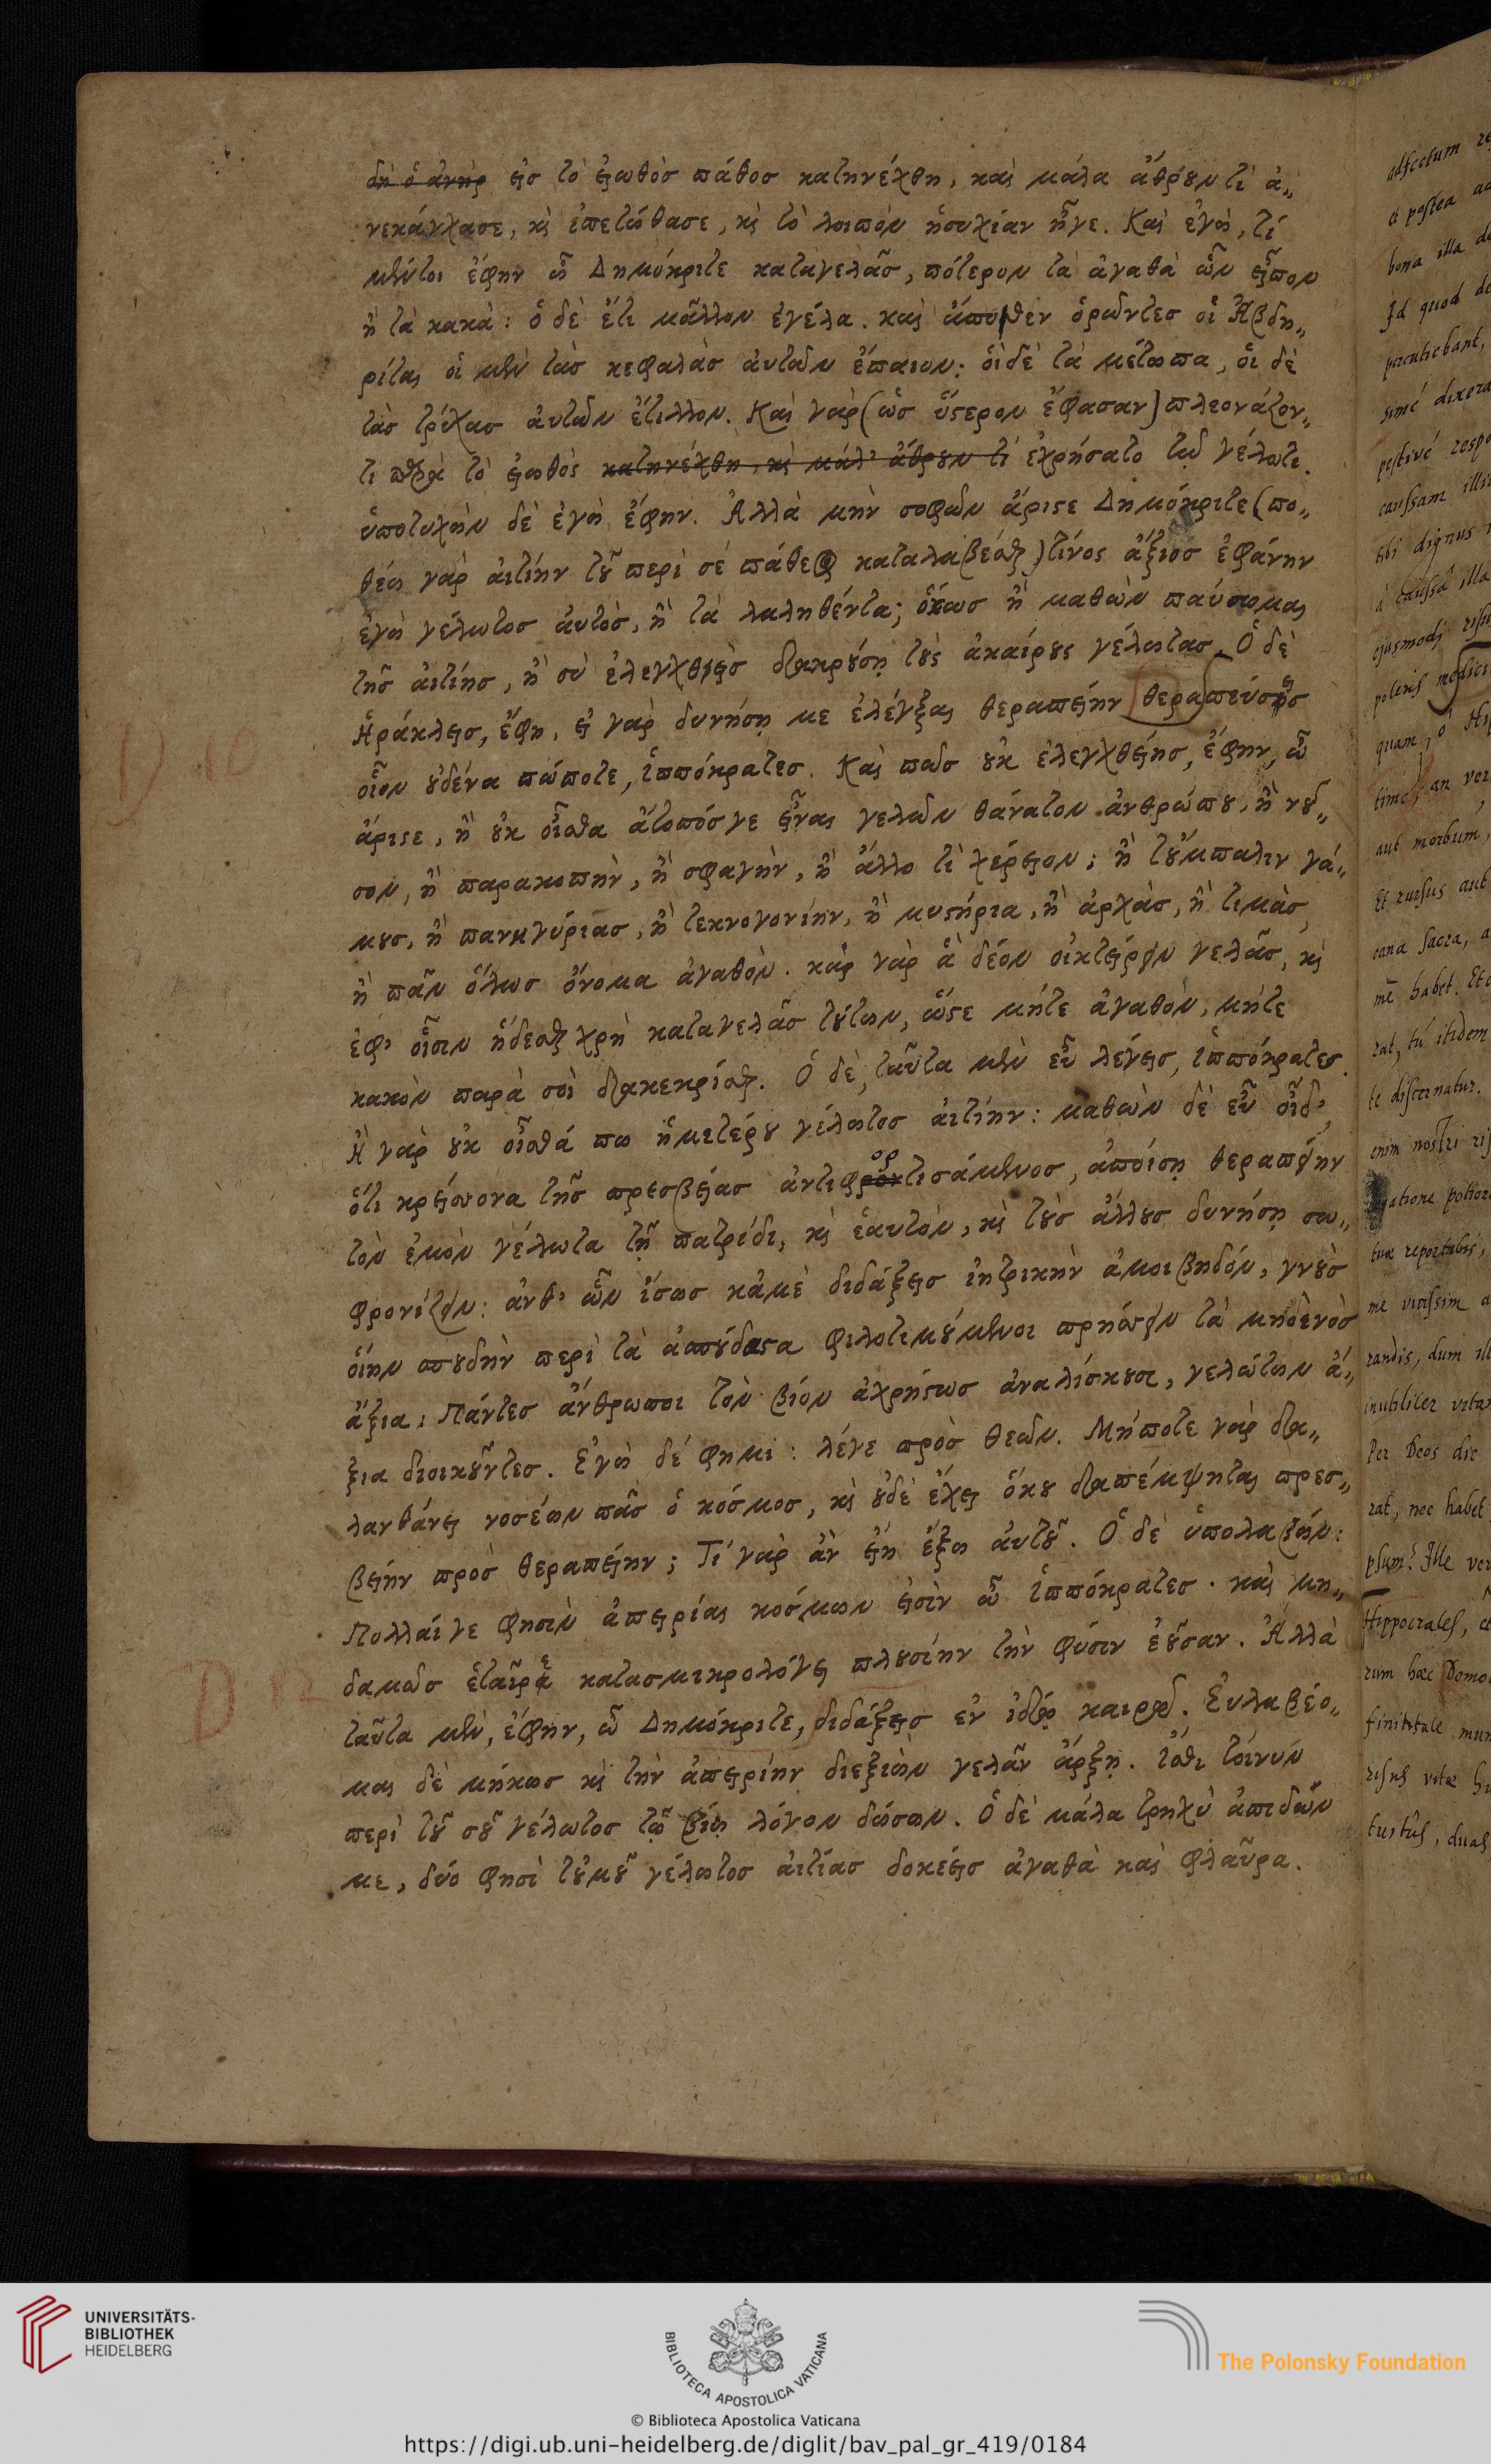 δὴ ὁ ἀνὴρ εἰς τὸ εἰωθὸς πάθος κατηνέχθη, καὶ μάλα ἄθρουν τὶ ἀ„
νεκάγχασε, κὶ ἐπετώθασε, κὶ τὸ λοιπὸν ἡσυχίαν ἦγε. Καὶ ἐγὼ, τί
μέντοι ἔφην ὦ Δημόκριτε καταγελᾶς, πότερον τὰ ἀγαθὰ ὧν εἶπον
ἢ τὰ κακὰ: ὁ δὲ ἔτι μᾶλλον ἐγέλα. καὶ ἄποθεν ὁρῶντες οἱ Ἀβδη„
ρίται οἱ μὲν τὰς κεφαλὰς ἀυτῶν ἔπαιον: οἱ δὲ τὰ μέτωπα, οἱ δὲ
τὰς τρίχας ἀυτῶν ἔτιλλον. Καὶ γὰρ (ὡς ὕστερον ἔφασαν) πλεονάζον„
τι παρὰ τὸ εἰωθὸς κατηνέχθη, κὶ μάλ' ἄθρουν τὶ ἐχρήσατο τῷ γέλωτι.
ὑποτυχὼν δὲ ἐγὼ ἔφην. Ἀλλὰ μὴν σοφῶν ἄριστε Δημόκριτε (πο„
θέω γὰρ ἀιτίην τοῦ περὶ σὲ πάθεος καταλαβέσθαι) τίνος ἄξιος ἐφάνην
ἐγὼ γέλωτος ἀυτὸς, ἢ τὰ λαληθέντα; ὅκως ἢ μαθὼν παύσωμαι
τῆς ἀιτίης, ἢ σὺ ἐλεγχθεὶς διακρούσῃ τοὺς ἀκαίρους γέλωτας. Ὁ δὲ
Ἡράκλεις, ἔφη, εἰ γὰρ δυνήσῃ με ἐλέγξαι θεραπείην θεραπεύσεις
οἷον οὐδένα πώποτε, ἱππόκρατες. Καὶ πῶς οὐκ ἐλεγχθείης, ἔφην, ὦ
ἄριστε, ἢ οὐκ οἶσθα ἄτοπός γε εἶναι γελῶν θάνατον ἀνθρώπου, ἢ νοῦ„
σον, ἢ παρακοπὴν, ἢ σφαγὴν, ἢ ἄλλο τὶ χέρειον; ἢ τοὔμπαλιν γά„
μους, ἢ πανηγύριας, ἢ τεκνογονίην, ἢ μυστήρια, ἢ ἀρχὰς, ἢ τιμὰς,
ἢ πᾶν ὅλως ὄνομα ἀγαθὸν. καὶ γὰρ ἃ δέον οἰκτείρειν γελᾶς, κὶ
ἐφ' οἷσιν ἥδεσθαι χρὴ καταγελᾶς τούτων, ὥστε μήτε ἀγαθὸν, μήτε
κακὸν παρὰ σοὶ διακεκρίσθαι. Ὁ δὲ, ταῦτα μὲν εὖ λέγεις, ἱππόκρατες.
Ἀ γὰρ οὐκ οἶσθά πω ἡμετέρου γέλωτος ἀιτίην: μαθὼν δὲ εὖ οἶδ',
ὅτι κρείσσονα τῆς πρεσβείας ἀντιφροντισάμενος, ἀποίσῃ θεραπείην
τὸν ἐμὸν γέλωτα τῇ πατρίδι, κὶ ἑαυτὸν, κὶ τοὺς ἄλλους δυνήσῃ σω„
φρονίζειν: ἀνθ' ὧν ἴσως κἀμὲ διδάξεις ἰητρικὴν ἀμοιβηδόν, γνοὺς
ὅίην σπουδὴν περὶ τὰ ἀσπούδαστα φιλοτιμούμενοι πρήσσειν τὰ μηδενὸς
ἄξια; Πάντες ἄνθρωποι τὸν βίον ἀχρήστως ἀναλίσκουσι, γελώτων ἄ„
ξια διοικοῦντες. Ἐγὼ δέ φημι: λέγε πρὸς θεῶν. Μήποτε γὰρ δια„
λανθάνει νοσέων πᾶς ὁ κόσμος, κὶ οὐδὲ ἔχει ὅκου διαπέμψηται πρεσ„
βείην πρὸς θεραπείην; Τί γὰρ ἀν εἴη ἔξω ἀυτοῦ. Ὁ δὲ ὑπολαβὼν:
Πολλαί γε φησὶν ἀπειρίαι κόσμων εἰσὶν ὦ ἱππόκρατες. καὶ μη„
δαμῶς ἑταῖρε κατασμικρολόγει πλουσίην τὴν φύσιν ἐοῦσαν. Ἀλλὰ
ταῦτα μὲν, ἔφην, ὦ Δημόκριτε, διδάξεις ἐν ἰδίῳ καιρῷ. Ἐυλαβέο„
μαι δὲ μήκως κὶ τὴν ἀπειρίην διεξιὼν γελᾶν ἄρξῃ. ἴσθι τοίνυν
περὶ τοῦ σοῦ γέλωτος τῷ βίῳ λόγον δώσων. Ὁ δὲ μάλα τρηχὺ ἀπιδὼν
με, δύο φησὶ τοὐμοῦ γέλωτος ἀιτίας δοκέεις ἀγαθὰ καὶ φλαῦρα.
D 10
D 12
adfectum
et postea
bona illa
Id quod
percutiebant,
caussam
tibi dignus
à caussâ illa
ejusmodi
quam, ô
time, an
aut morbum,
Et rursus aut
cana sacra,
habet. Et
rat, tu itidem
te discernatur.
enim nostri
tuæ reportabis,
me vicissim
randis, dum
inutiliter
Per Deos dic
rat, nec habet
psum? Ille
Hippocrates,
rum hæc Demo
finitate mun
risus vitæ
tuitus, duas
UNIVERSITÄTS-
BIBLIOTHEK
HEIDELBERG
BIBLIOTECA APOSTOLICA VATICANA
The Polonsky Foundation
© Biblioteca Apostolica Vaticana
https://digi.ub.uni-heidelberg.de/diglit/bav_pal_gr_419/0184